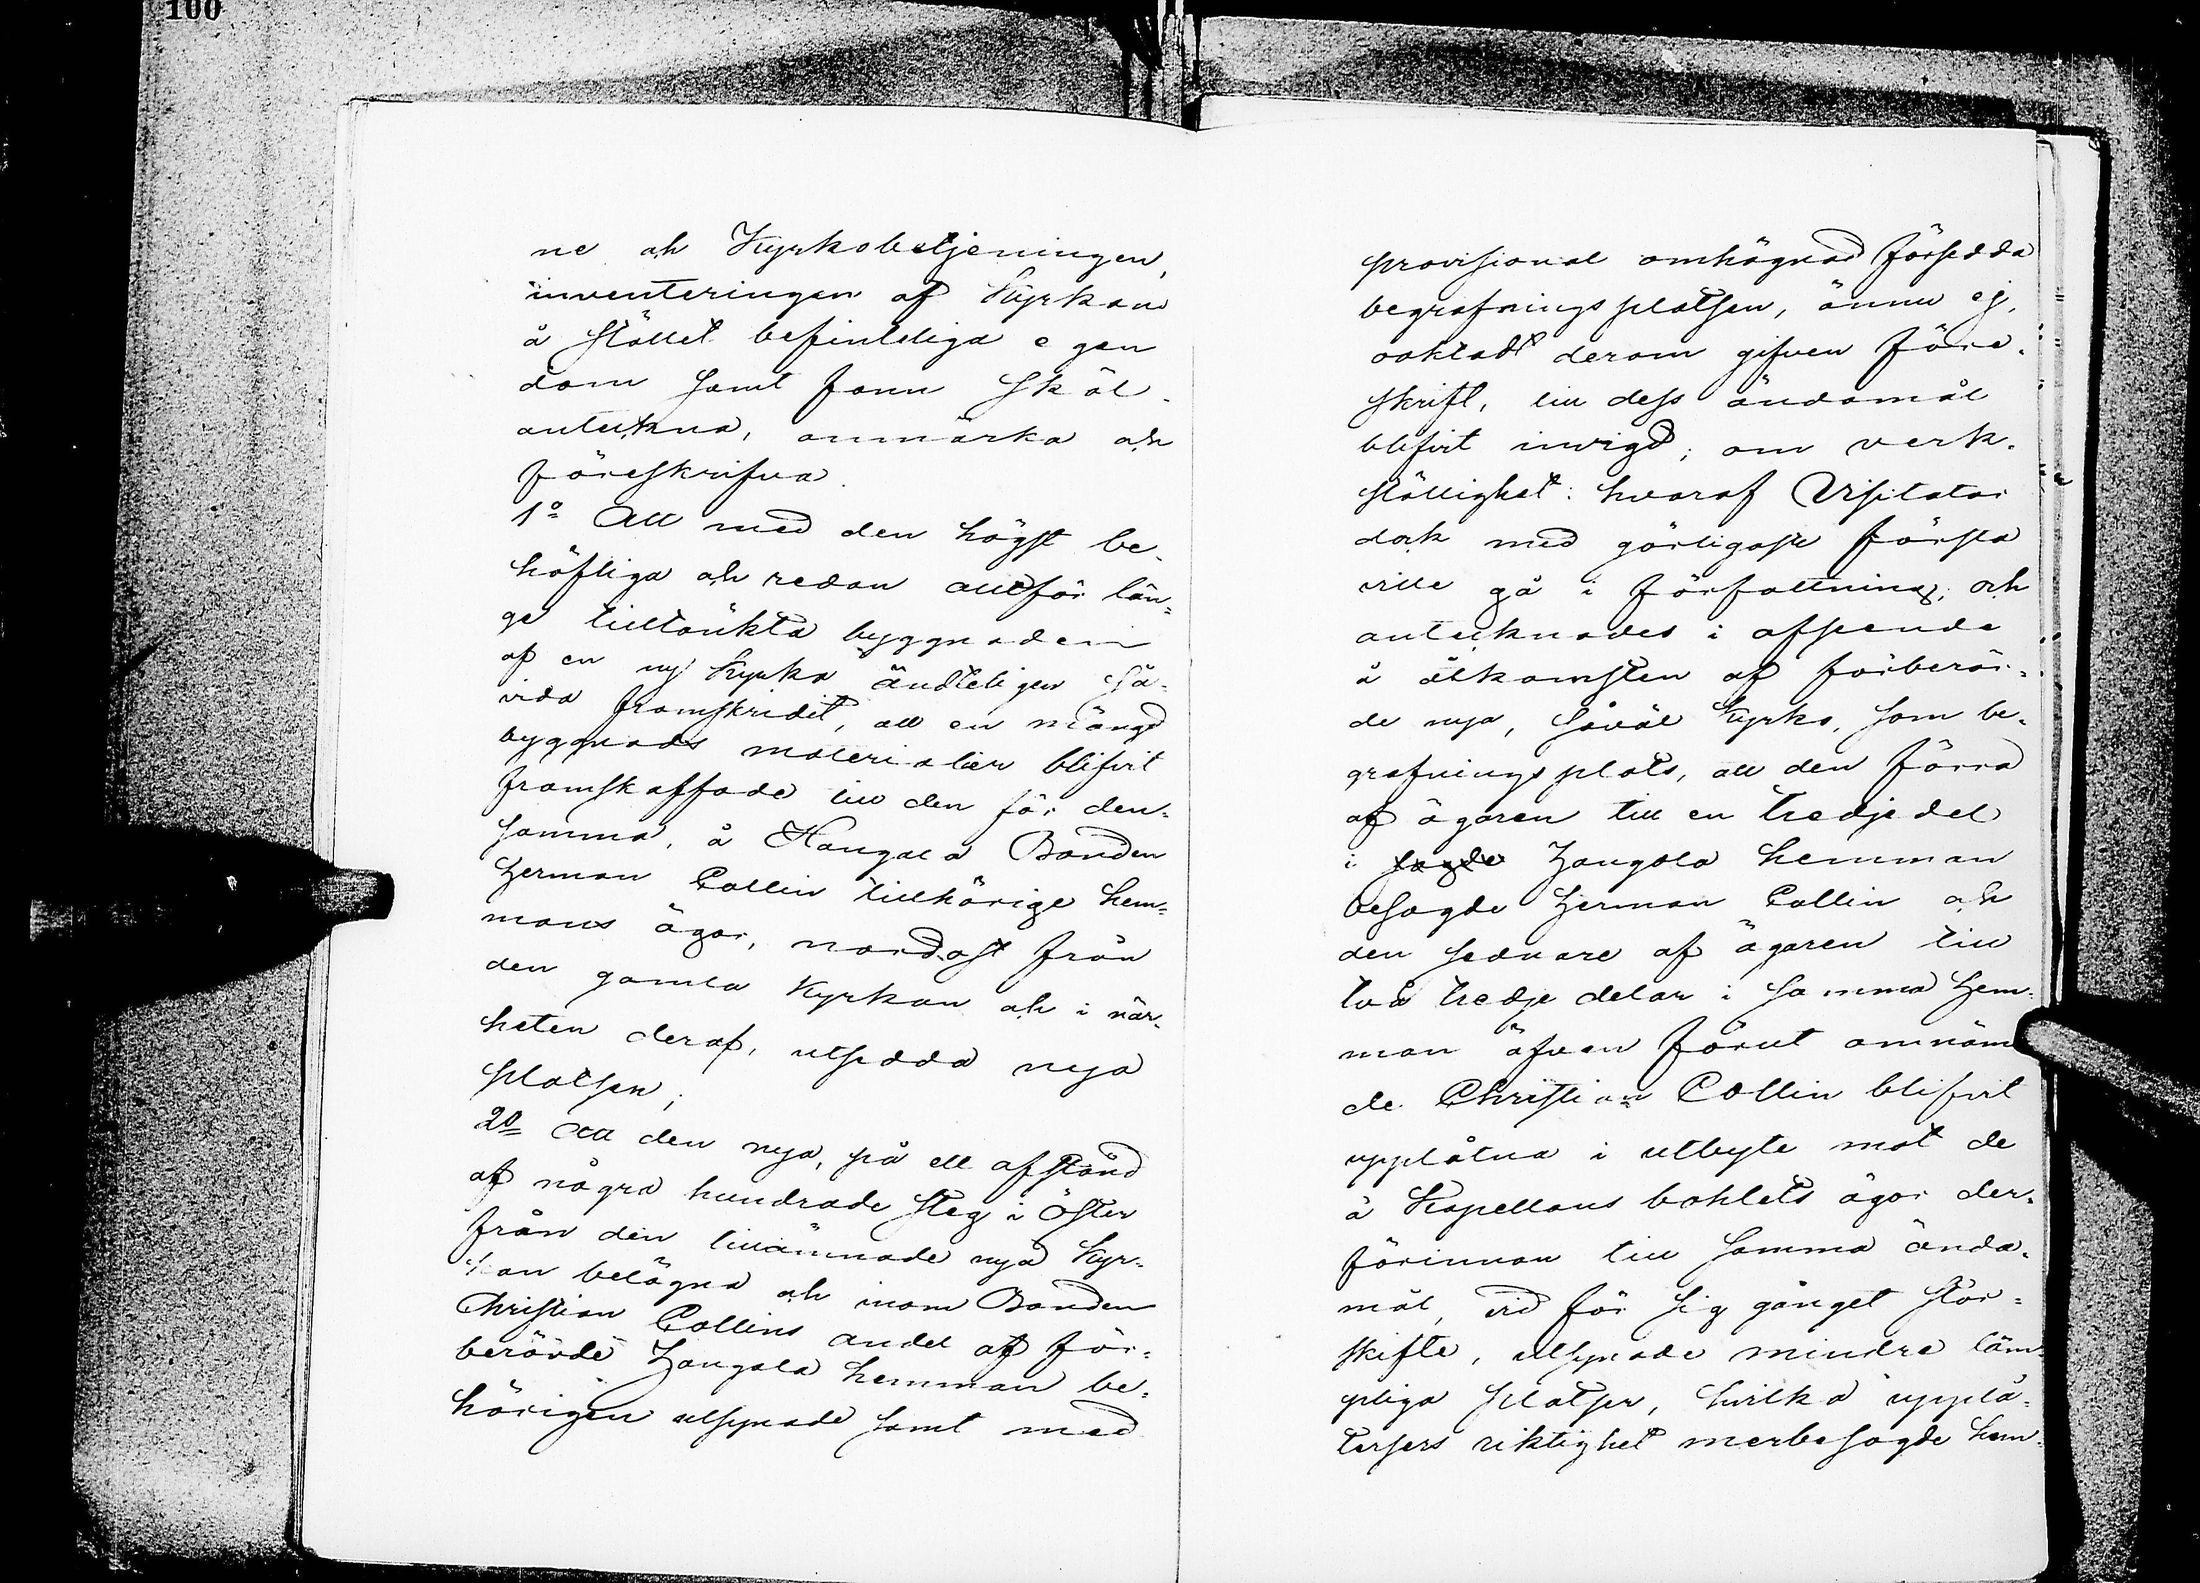 100
ne och Kyrkobetjeningen,
inventeringen af Kyrkans
å stället befinteliga egen
dom samt fann skäl
anteckna, anmärka och
föreskrifva.
1º Att med den högst be-
höfliga och redan alltför län-
ge tilltänkta byggnaden
af en ny Kyrka ändteligen så-
vida framskridit, att en mängd
byggnads materialier blifvit
framskaffade till den för den-
samma, å Hangala Bonden
Herman Collin tillhörige hem-
mans ägor, nordost från
den gamla Kyrkan och i när-
heten deraf, utsedda nya
platsen;
2º Att den nya, på ett afstånd
af några hundrade steg i öster
från den tillämnade nya Kyr-
kan belägna och inom Bonden
Christian Collins andel af för-
berörde Hangala hemman be-
hörigen utsynade samt med
provisional omhägnad försedda
begrafningsplatsen, ännu ej,
oaktadt derom gifven före-
skrift, till dess ändamål
blifvit invigd; om verk-
ställighet hvaraf Visitator
dock med görligaste första
ville gå i författning; och
antecknades i afseende
å åtkomsten af förberör-
de nya, såväl Kyrko, som be-
grafningsplats, att den förra
af ägaren till en tredjedel
i sagde Hangala hemman
besagde Herman Collin och
den sednare af ägaren till
två tredje delar i samma Hem-
man äfven förut omnäm
de Christian Collin blifvit
upplåtna i utbyte mot de
å Kapellans bohlets ägor der-
förinnan till samma ända-
mål, vid för sig gånget stor-
skifte, utsynade mindre läm-
pliga platser, hvilka upplå-
telsers riktighet merbesagde hem-